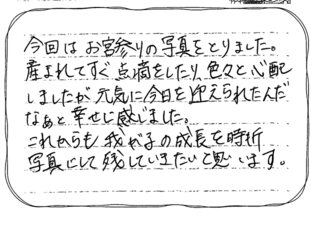 今回はお宮参りの写真をとりました。
産まれてすぐ点滴をしたり、色々と心配
しましたが元気に今日を迎えられたんだ
なぁと幸せに感じました。
これからも我が子の成長を時折
写真にして残していきたいと思います。